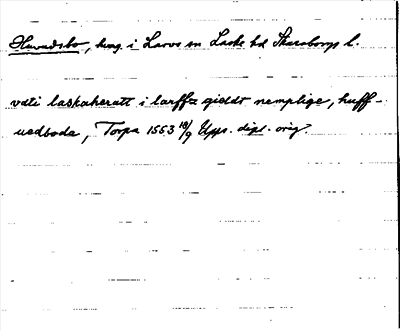 Huvudsbo, hmg. i Larvs sn Laske hd Skaraborgs l.
vdti laskaheratt i larffz gieldt nemplige, huff-
uedboda, Torpa 1553 18/9 Upps. dipl. orig.